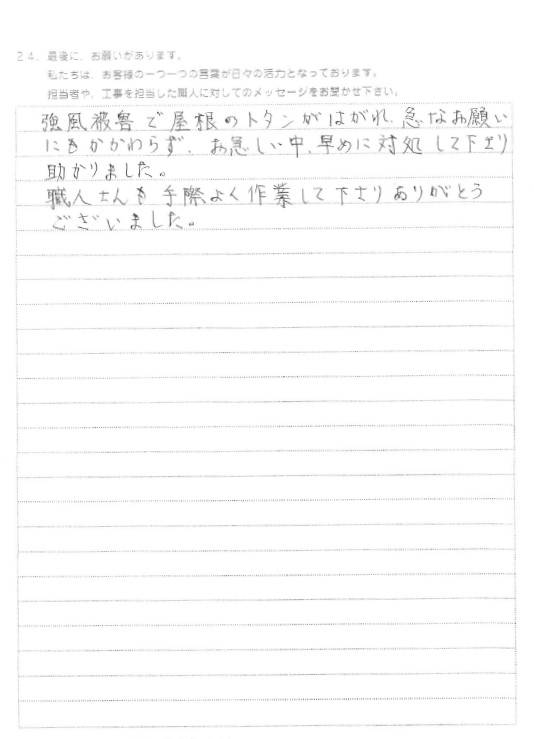 24. 最後に、お願いがあります。
私たちは、お客様の一つ一つの言葉が日々の活力となっております。
担当者や、工事を担当した職人に対してのメッセージをお聞かせ下さい。
強風被害で屋根のトタンがはがれ、急なお願い
にもかかわらず、お急しい中、早めに対処して下さり
助かりました。
職人さんも手際よく作業して下さりありがとう
ございました。